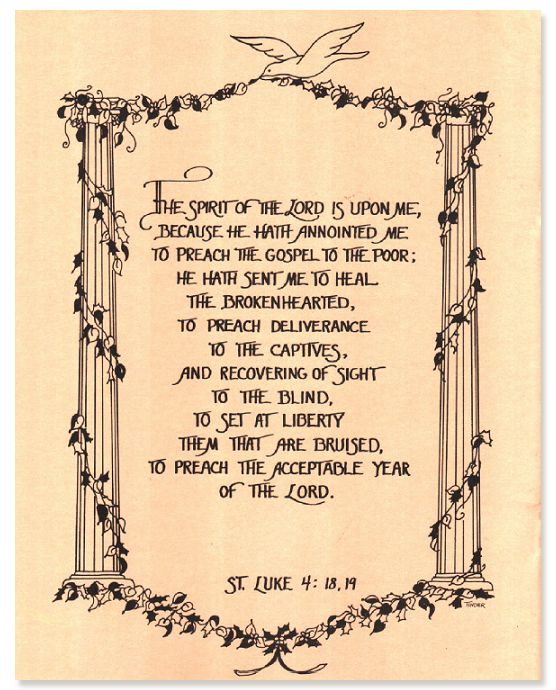 THE SPIRIT OF THE LORD IS UPON ME,
BECAUSE HE HATH ANNOINTED ME
TO PREACH THE GOSPEL TO THE POOR;
HE HATH SENT ME TO HEAL
THE BROKENHEARTED,
TO PREACH DELIVERANCE
TO THE CAPTIVES,
AND RECOVERING OF SIGHT
TO THE BLIND,
TO SET AT LIBERTY
THEM THAT ARE BRUISED,
TO PREACH THE ACCEPTABLE YEAR
OF THE LORD.
ST. LUKE 4: 18, 19
TINDER